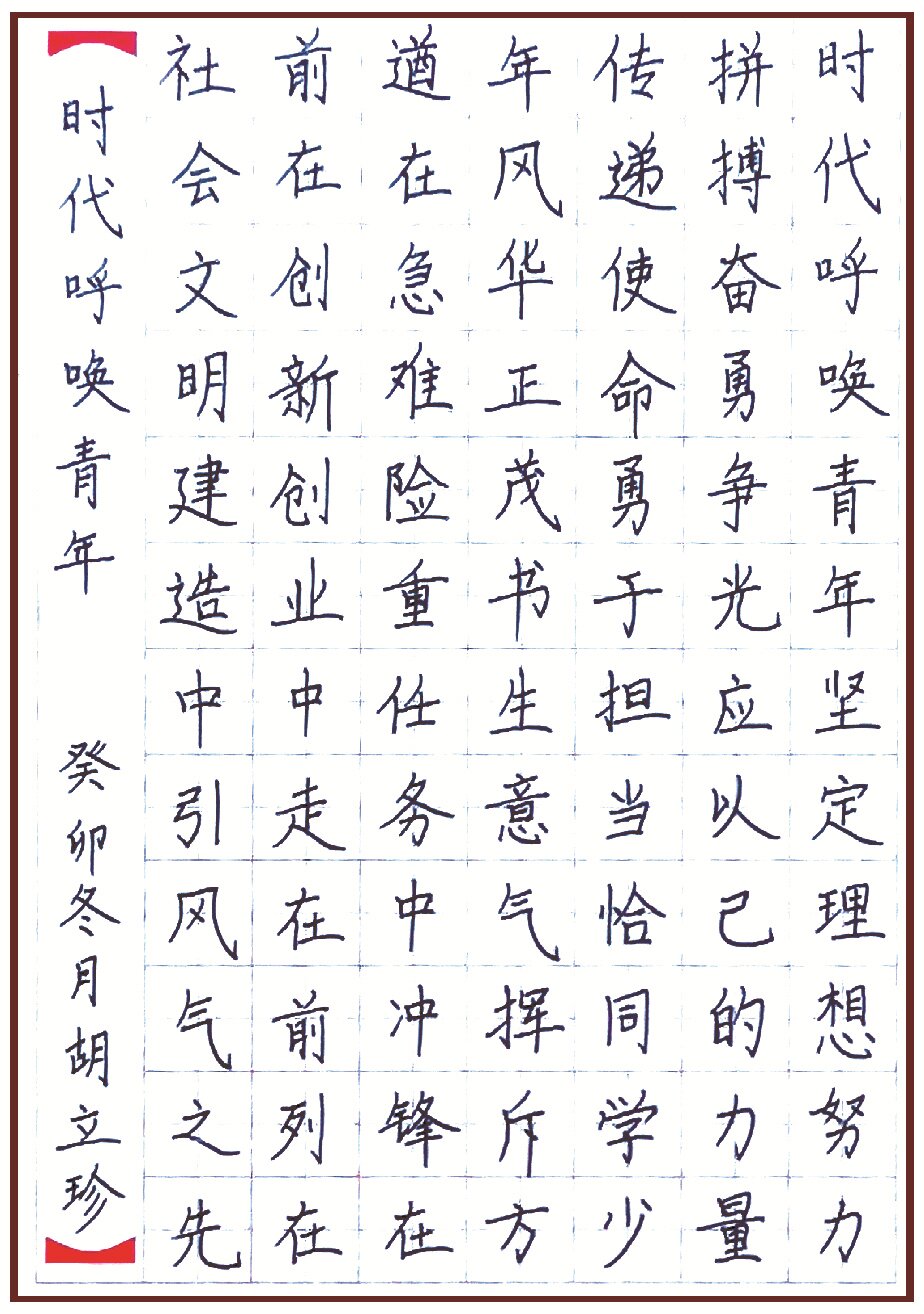 时代呼唤青年坚定理想努力
拼搏奋勇争光应以己的力量
传递使命勇于担当恰同学少
年风华正茂书生意气挥斥方
遒在急难险重任务中冲锋在
前在创新创业中走在前列在
社会文明建造中引风气之先
时代呼唤青年 癸卯冬月胡立珍